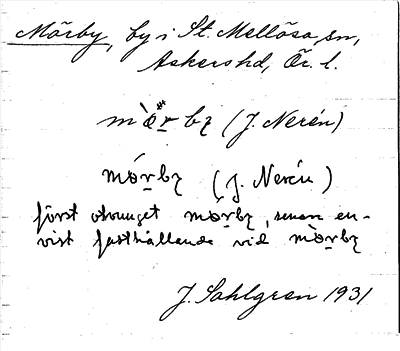 Mörby, by i St. Mellösa sn,
Askershd, Ör. l.
mòrbz (J. Nerén)
mórbz (J. Nerén)
först otvunget mórbz, senare en-
vist fasthållande vid mòrbz
J. Sahlgren 1931